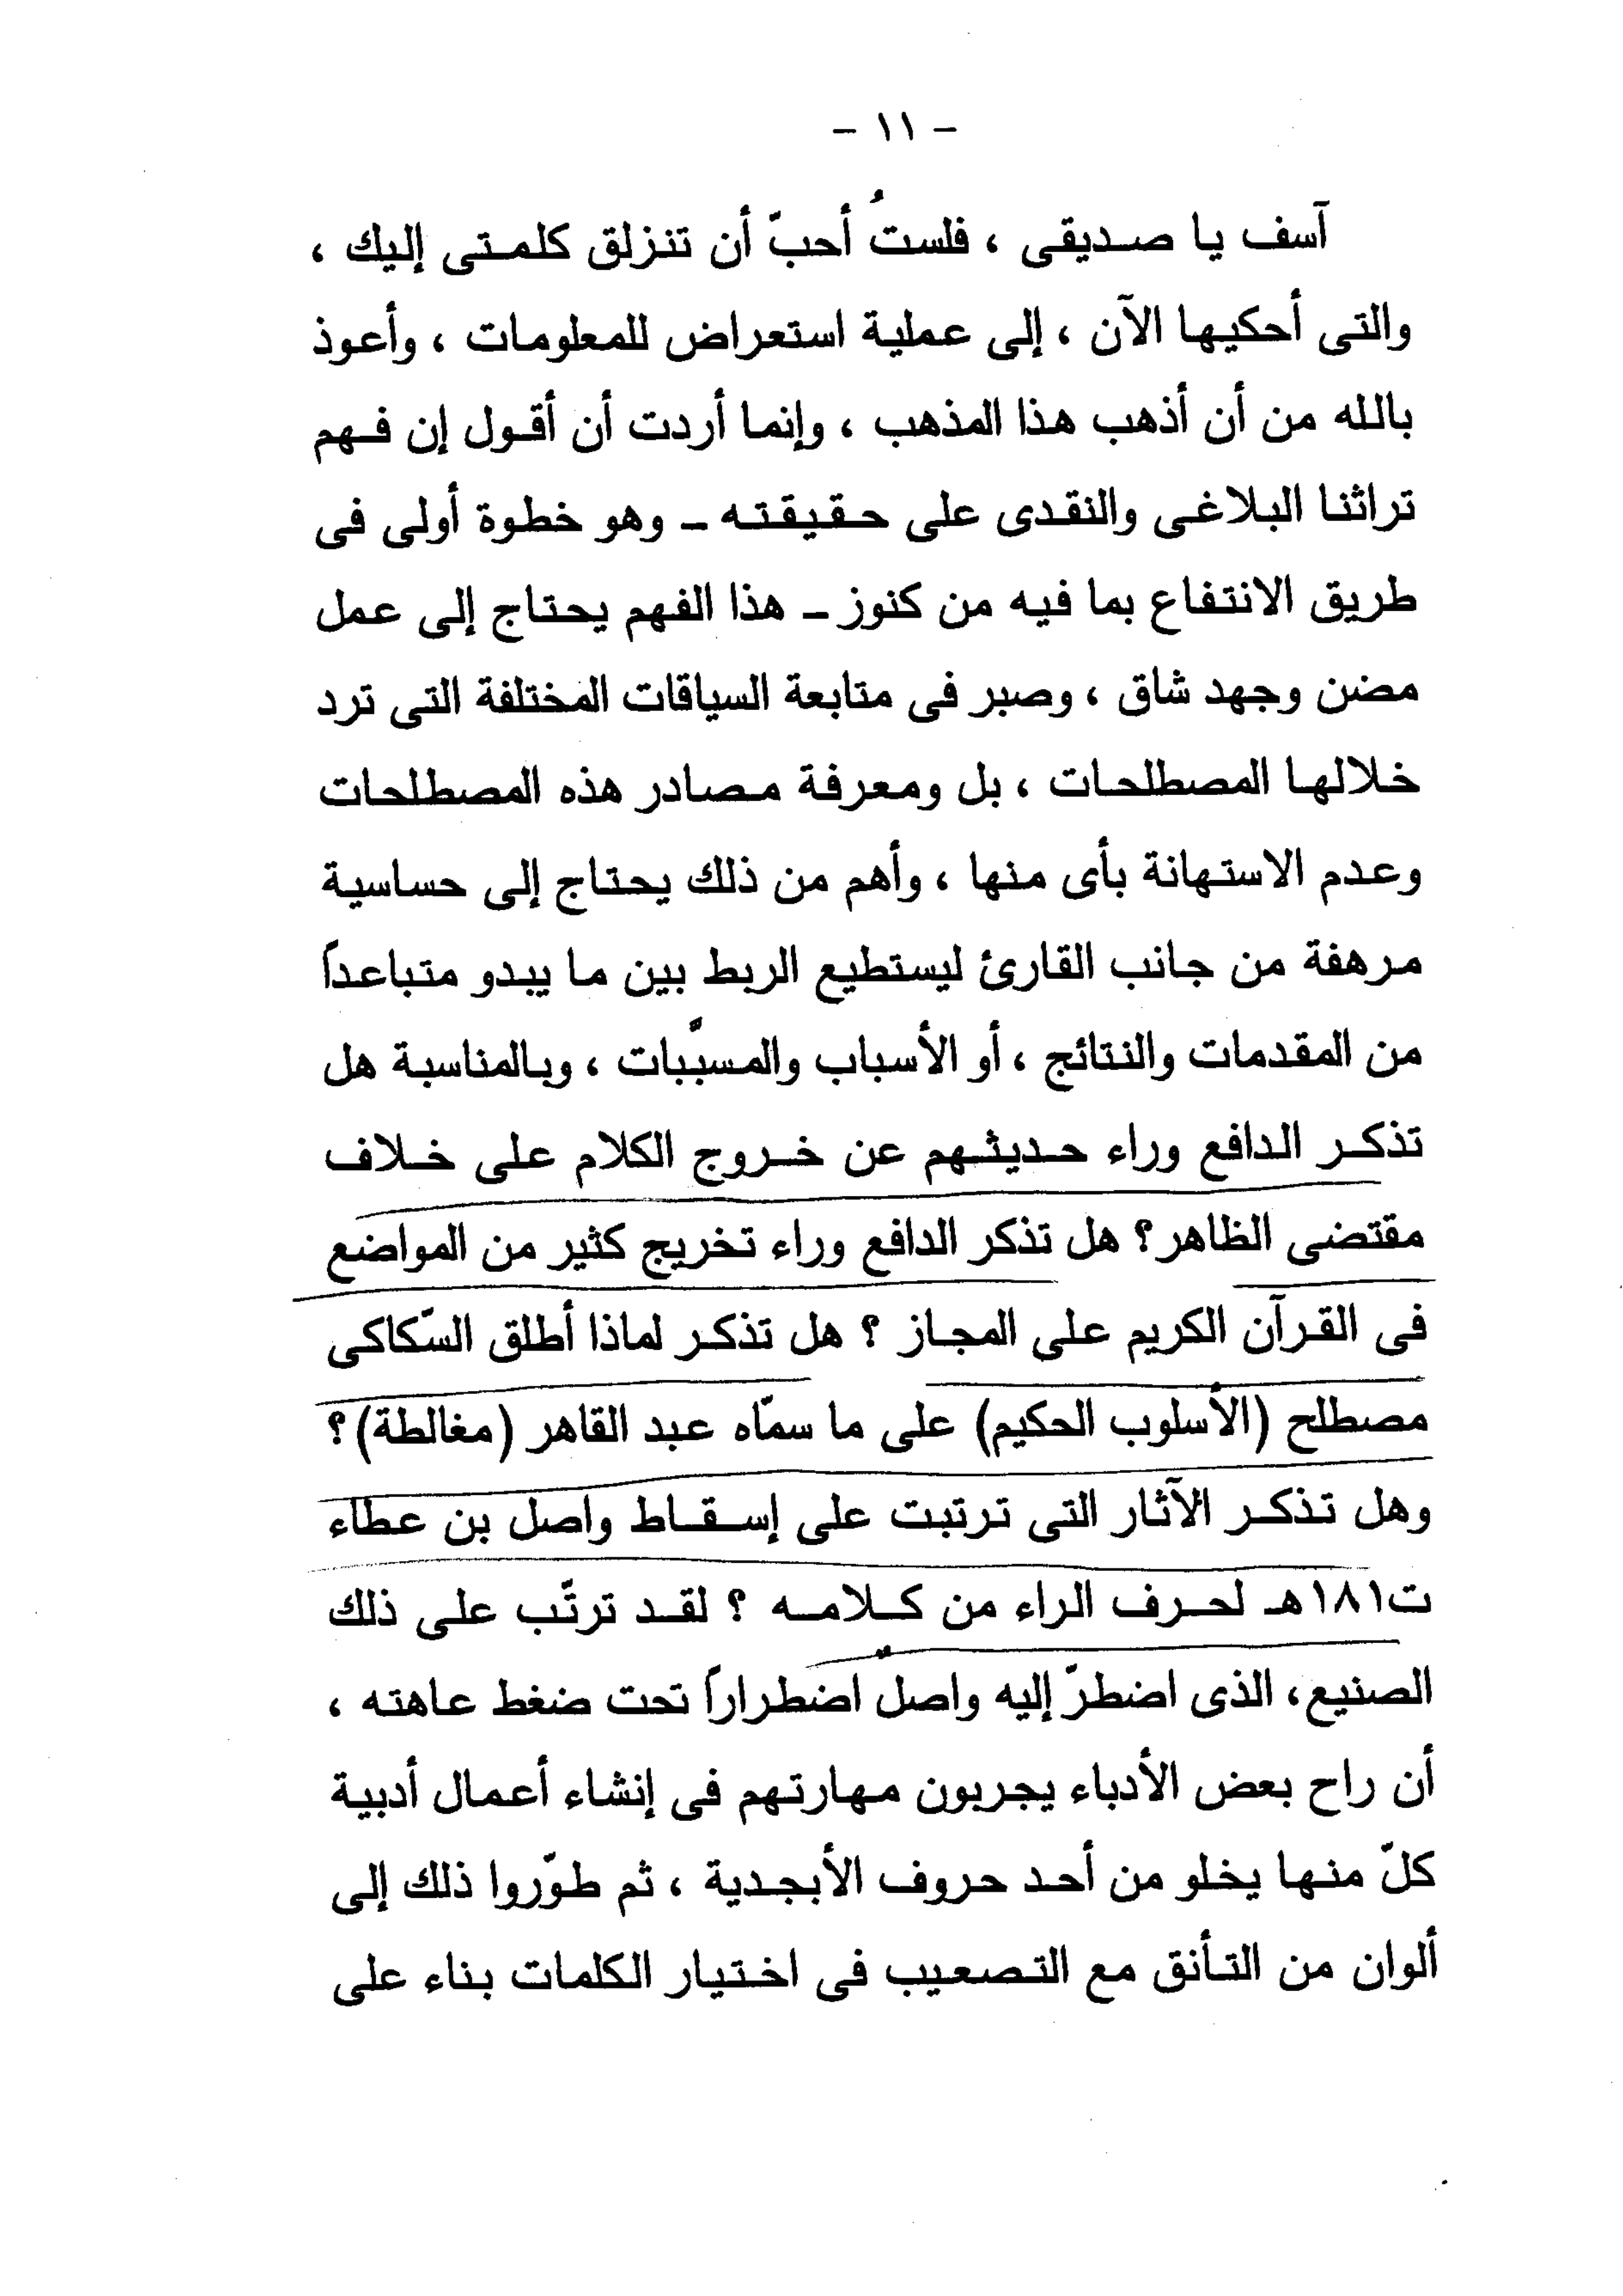 - ١١ -
آسف يا صديقى ، فلستُ أحبّ أن تنزلق كلمتى إليك ،
والتى أحكيها الآن ، إلى عملية استعراض للمعلومات ، وأعوذ
بالله من أن أذهب هذا المذهب ، وإنما أردت أن أقول إن فهم
تراثنا البلاغى والنقدى على حقيقته – وهو خطوة أولى فى
طريق الانتفاع بما فيه من كنوز – هذا الفهم يحتاج إلى عمل
مضن وجهد شاق ، وصبر فى متابعة السياقات المختلفة التى ترد
خلالها المصطلحات ، بل ومعرفة مصادر هذه المصطلحات
وعدم الاستهانة بأى منها ، وأهم من ذلك يحتاج إلى حساسية
مرهفة من جانب القارئ ليستطيع الربط بين ما يبدو متباعداً
من المقدمات والنتائج ، أو الأسباب والمسبَّبات ، وبالمناسبة هل
تذكر الدافع وراء حديثهم عن خروج الكلام على خلاف
مقتضى الظاهر؟ هل تذكر الدافع وراء تخريج كثير من المواضع
فى القرآن الكريم على المجاز ؟ هل تذكر لماذا أطلق السّكاكى
مصطلح (الأسلوب الحكيم) على ما سمّاه عبد القاهر (مغالطة)؟
وهل تذكر الآثار التى ترتبت على إسقاط واصل بن عطاء
ت١٨١هـ لحرف الراء من كلامه ؟ لقد ترتّب على ذلك
الصنيع، الذى اضطرّ إليه واصلٌ اضطراراً تحت ضغط عاهته ،
أن راح بعض الأدباء يجربون مهارتهم فى إنشاء أعمال أدبية
كلّ منها يخلو من أحد حروف الأبجدية ، ثم طوّروا ذلك إلى
ألوان من التأنق مع التصعيب فى اختيار الكلمات بناء على